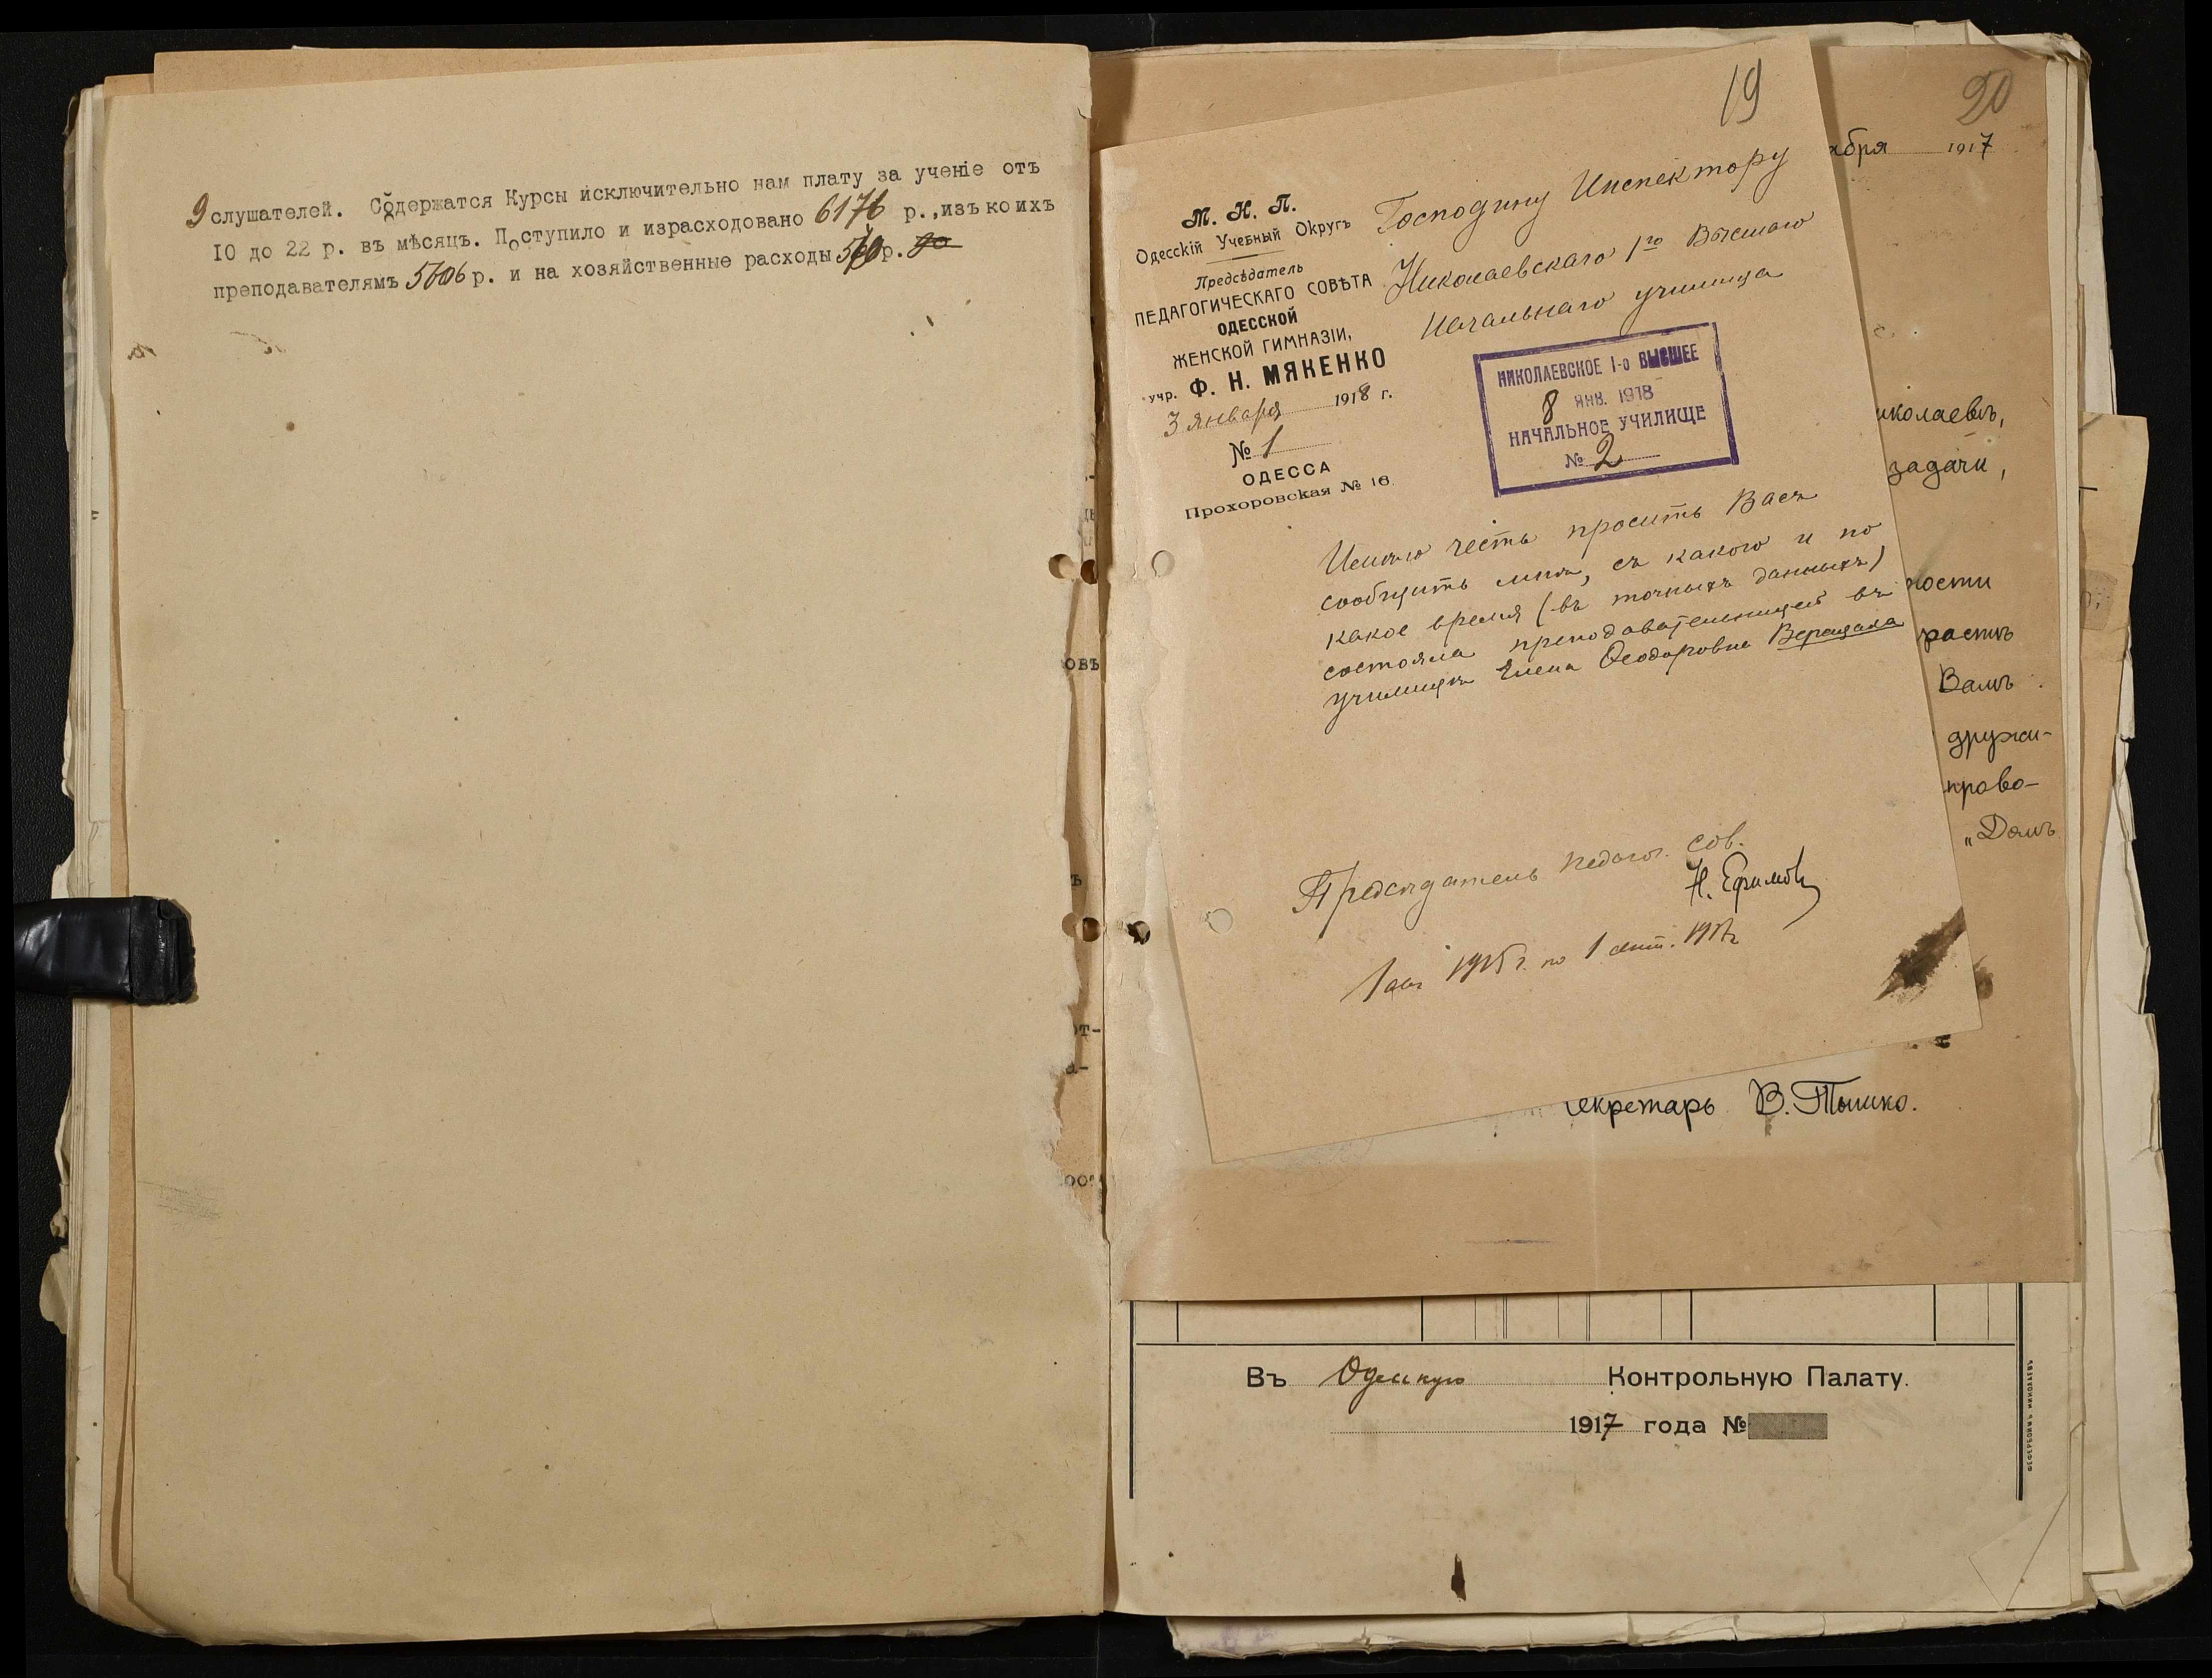 9 слушателей. Содержатся Курсы исключительно нам плату за ученіе отъ
10 до 22 р. въ мѣсяцъ. Поступило и израсходовано 6176 р., изъ коихъ
преподавателямъ 5606 р. и на хозяйственные расходы 570 р.
19
М. Н. П.
Одесскій Учебный Округъ
Предсѣдатель
ПЕДАГОГИЧЕСКАГО СОВѢТА
ОДЕССКОЙ
ЖЕНСКОЙ ГИМНАЗІИ,
учр. Ф. Н. МЯКЕНКО
3 января 1918 г.
№ 1
ОДЕССА
Прохоровская № 16.
Господину Инспектору
Николаевскаго 1го Высшаго
Начальнаго училища
НИКОЛАЕВСКОЕ 1-о ВЫСШЕЕ
8 ЯНВ. 1918
НАЧАЛЬНОЕ УЧИЛИЩЕ
№ 2
Имѣю честь просить Васъ
сообщить мнѣ, съ какого и по
какое время (въ точныхъ данныхъ)
состояла преподавательницей въ
училищѣ Елена Ѳеодоровна Верещака
Предсѣдатель Педагог. Сов.
Н. Ефимовъ
1 авг 1915 г. по 1 сент. 1917 г
20
ября 1917
иколаевъ,
задачи,
ности
растъ
Вамъ
дружи-
прово-
„Домъ
екретарь В. Тышко.
Въ Одесскую Контрольную Палату.
1917 года №